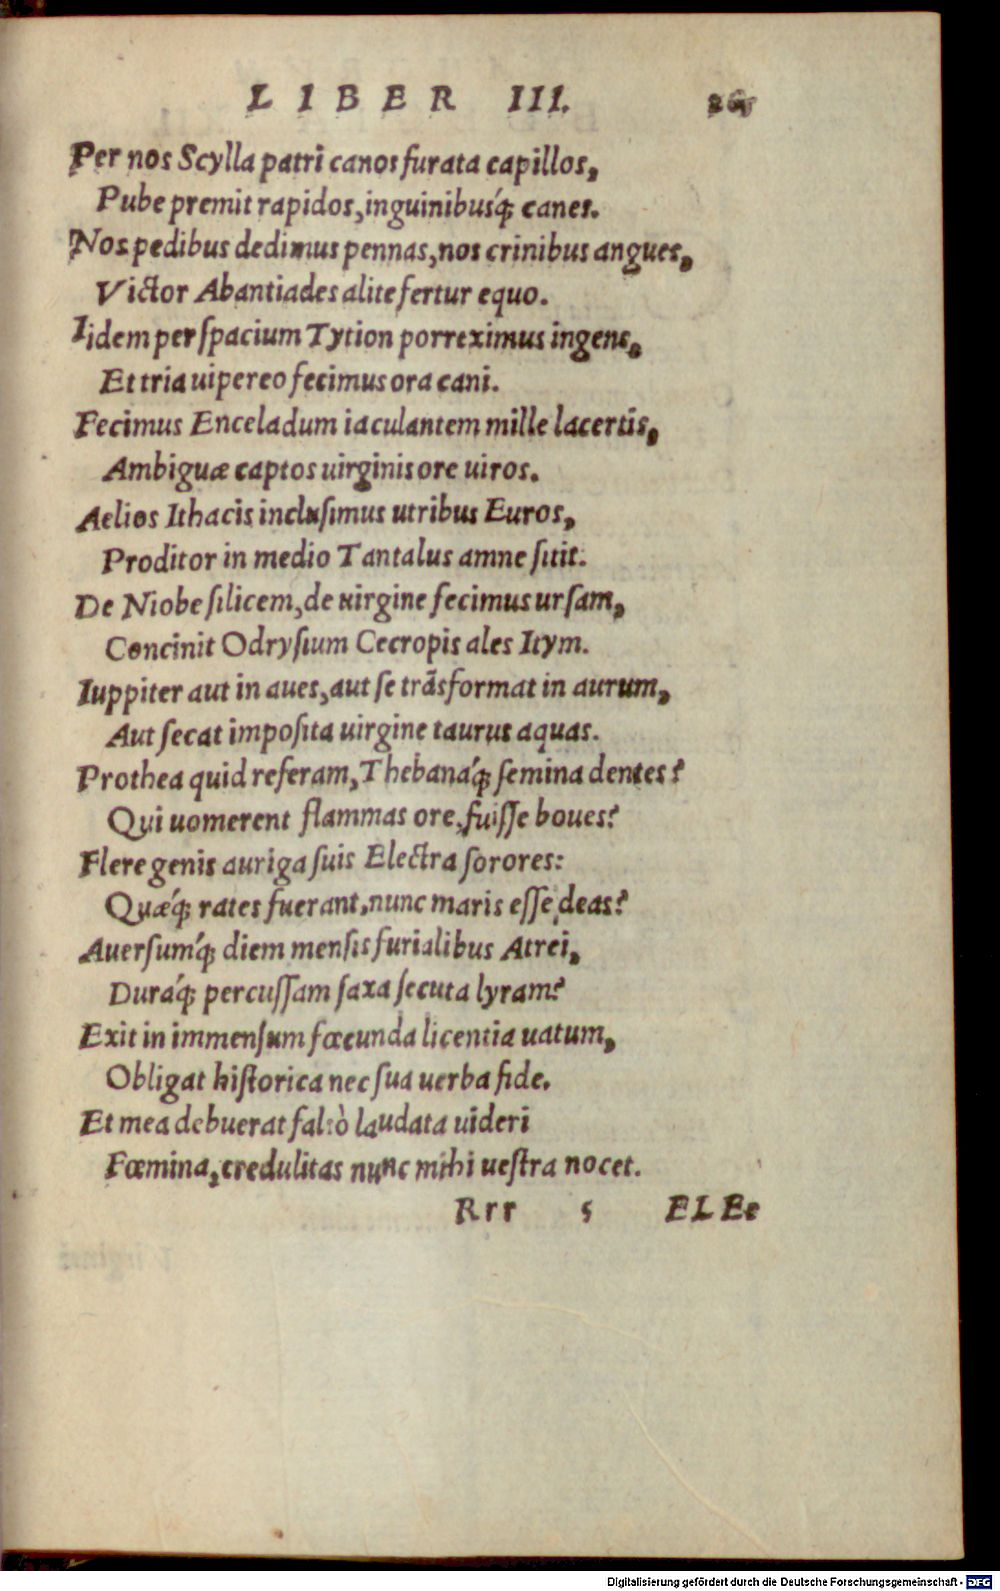 LIBER III.
Per nos Scylla patri canos furata capillos,
Pube premit rapidos, inguinibusq́; canes.
Nos pedibus dedimus pennas, nos crinibus angues,
Victor Abantiades alite fertur equo.
Iidem per ſpacium Tytion porreximus ingens,
Et tria uipereo fecimus ora cani.
Fecimus Enceladum iaculantem mille lacertis,
Ambiguæ captos uirginis ore uiros.
Aelios Ithacis incluſimus utribus Euros,
Proditor in medio Tantalus amne ſitit.
De Niobe ſilicem, de uirgine fecimus urſam,
Concinit Odryſium Cecropis ales Itym.
Iuppiter aut in aues, aut ſe trãsformat in aurum,
Aut ſecat impoſita uirgine taurus aquas.
Prothea quid referam, Thebanaq́; ſemina dentes?
Qui uomerent flammas ore, fuiſſe boues?
Flere genis auriga ſuis Electra ſorores:
Quæq́; rates fuerant, nunc maris eſſe deas?
Auerſumq́; diem menſis furialibus Atrei,
Duraq́; percuſſam ſaxa ſecuta lyram?
Exit in immenſum fœcunda licentia uatum,
Obligat hiſtorica nec ſua uerba fide.
Et mea debuerat falsò laudata uideri
Fœmina, credulitas nunc mihi ueſtra nocet.
Rrr 5 ELEe
Digitalisierung gefördert durch die Deutsche Forschungsgemeinschaft - DFG